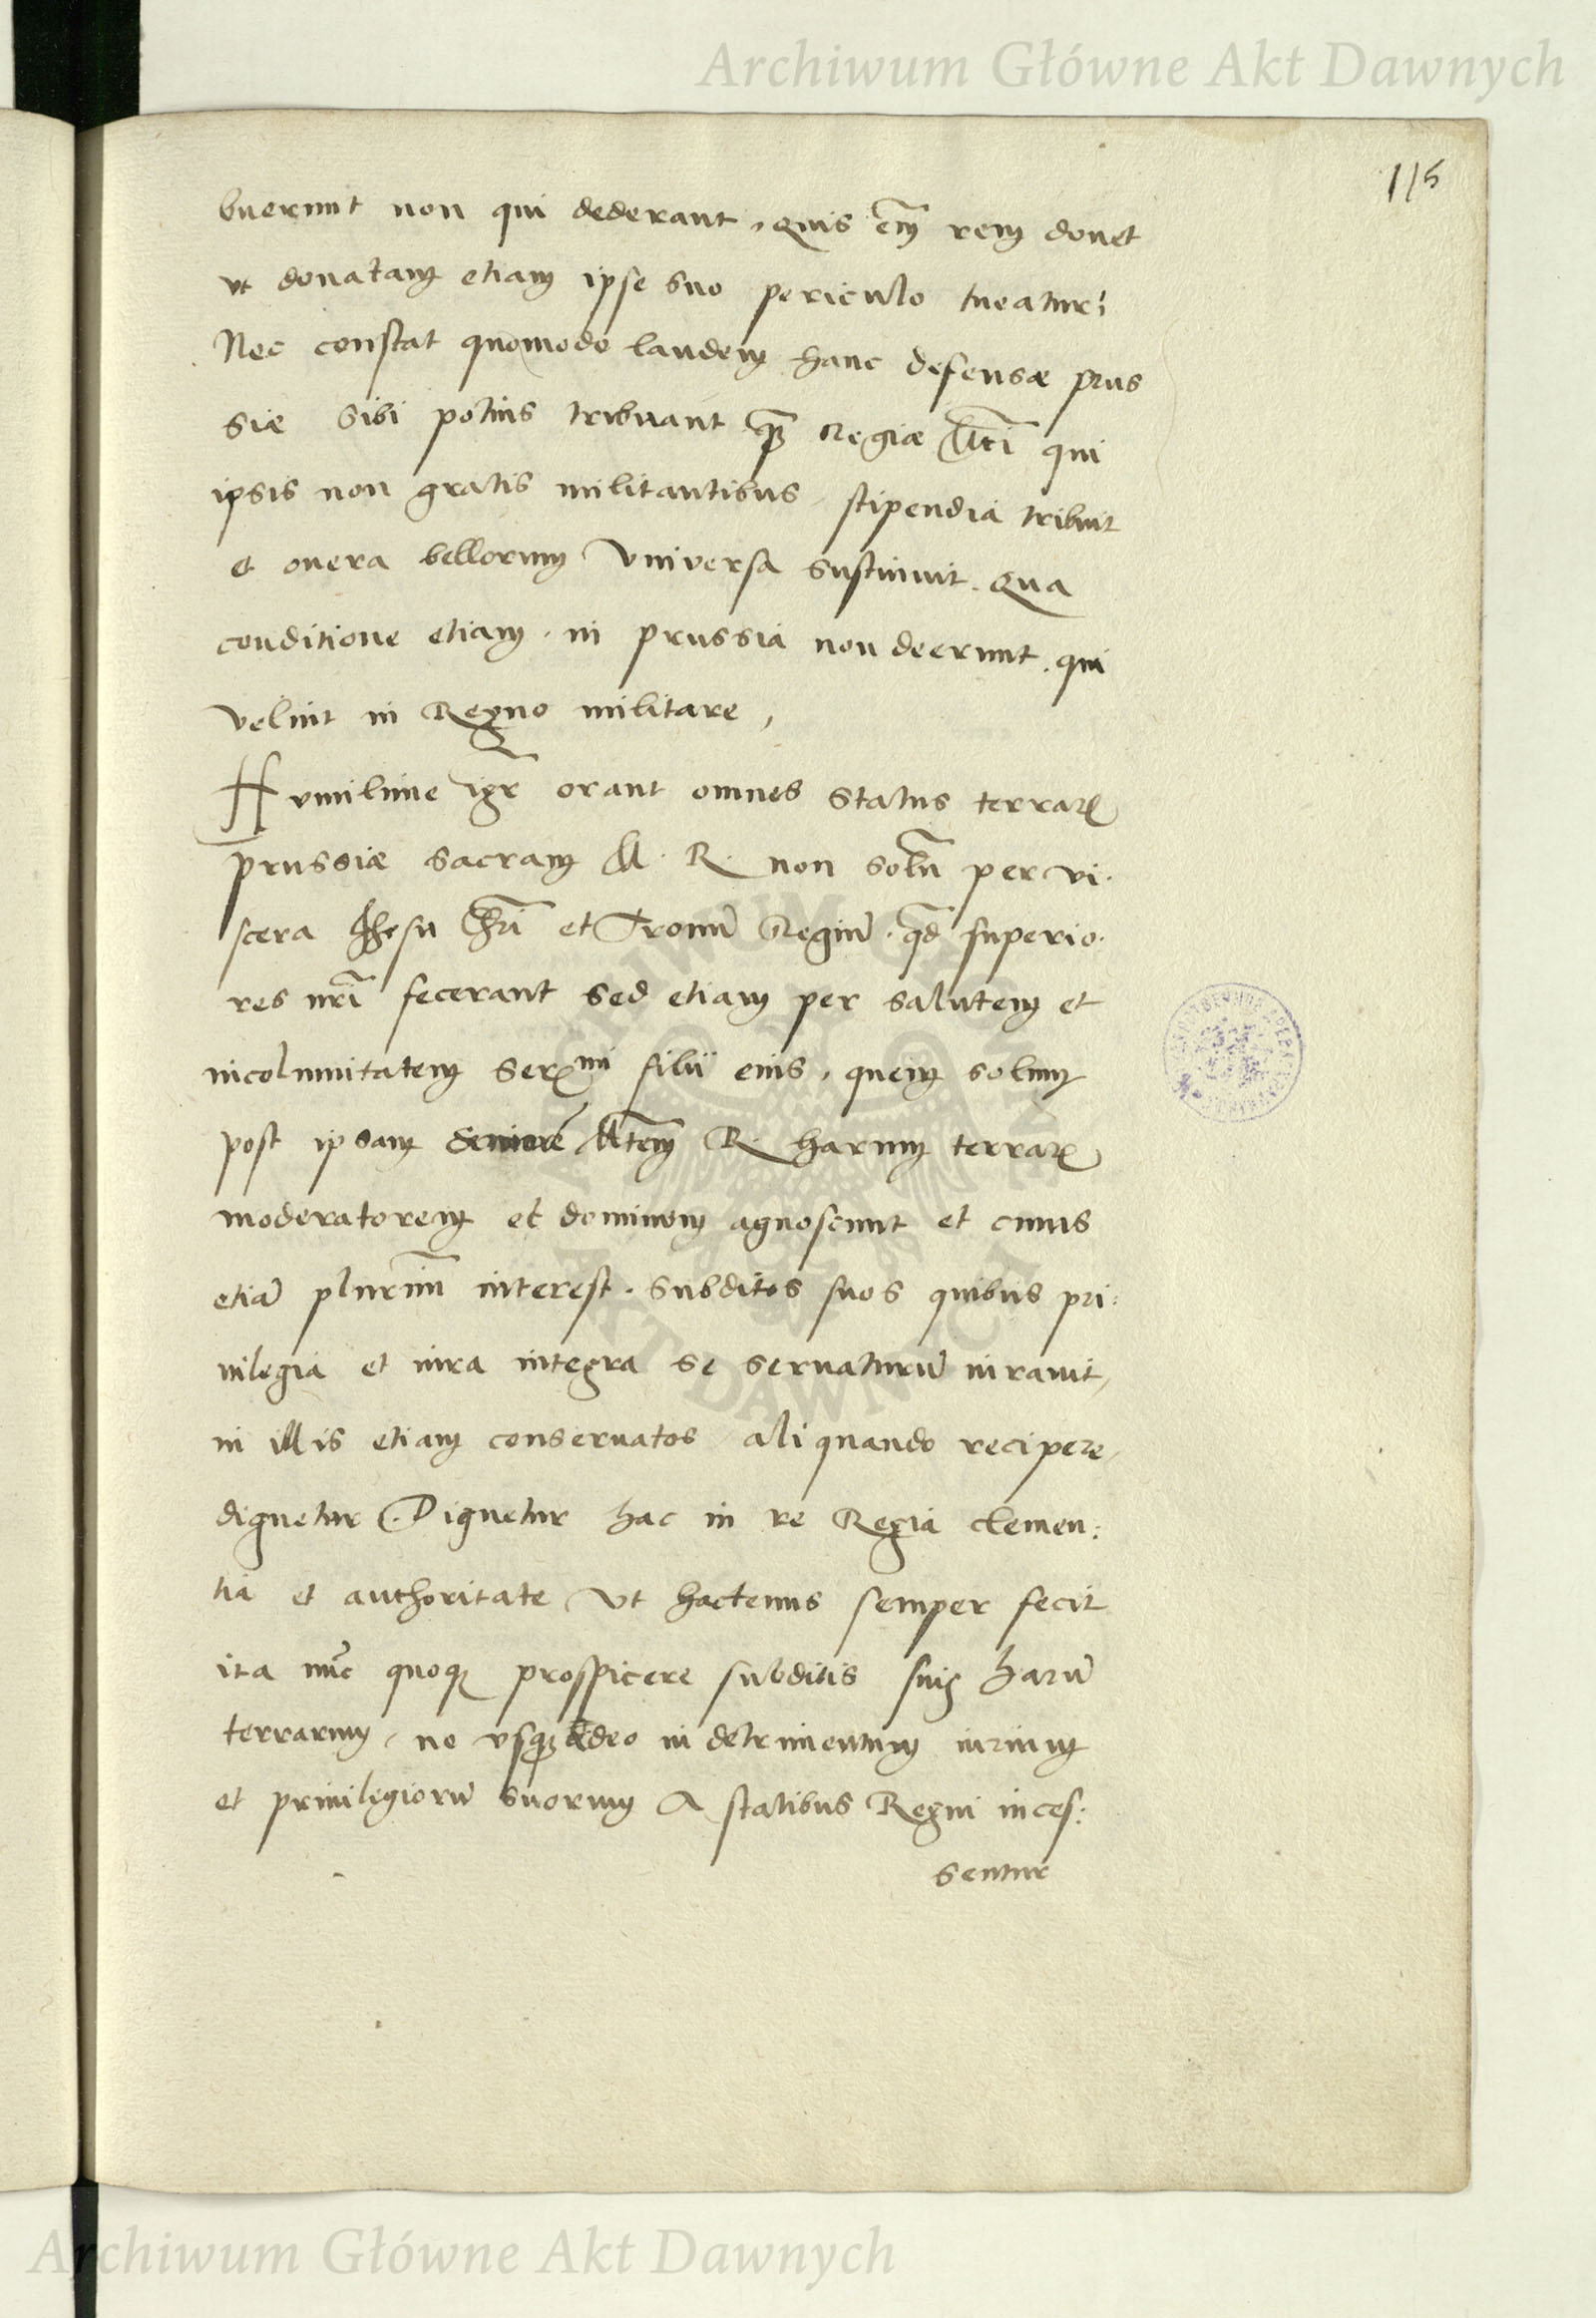 Archiwum Główne Akt Dawnych
115
buerunt non qui dederant, Quis em̃ rem donet
ut donatam etiam ipse suo periculo tueatur?
Nec constat quomodo laudem hanc defensæ Prus
siæ sibi potius tribuant q̃ Regiæ Mti qui
ipsis non gratis militantibus, stipendia tribuit
et onera bellorum Universa sustinuit. Qua
conditione etiam, in prussia non deerunt, qui
velint in Regno militare,
Humilime igr̃ orant omnes Status terrarꝝ
prussiæ sacram M. R. non solũ per vi.
scera Jhesu Chr̃i et Tronũ Regiũ, qd̃ superio.
res nr̃i fecerant sed etiam per salutem et
incolumitatem Serᵐⁱ filii eius, quem solum
post ipsam Mtem̃ R. harum terrarꝝ
moderatorem et dominum agnoscunt et cuius
etiã plurimũ interest. Subditos suos quibus pri:
uilegia et iura integra se seruaturũ iurauit,
in illis etiam conseruatos aliquando recipere,
dignetur. Dignetur hac in re Regia clemen:
tia et authoritate Ut hactenus semper fecit
ita nũc quoqꝫ prospicere subditis suis harũ
terrarum, ne usqꝫ adeo in detrimentum iurium
et priuilegiorũ suorum A statibus Regni inces:
sentur
Archiwum Główne Akt Dawnych